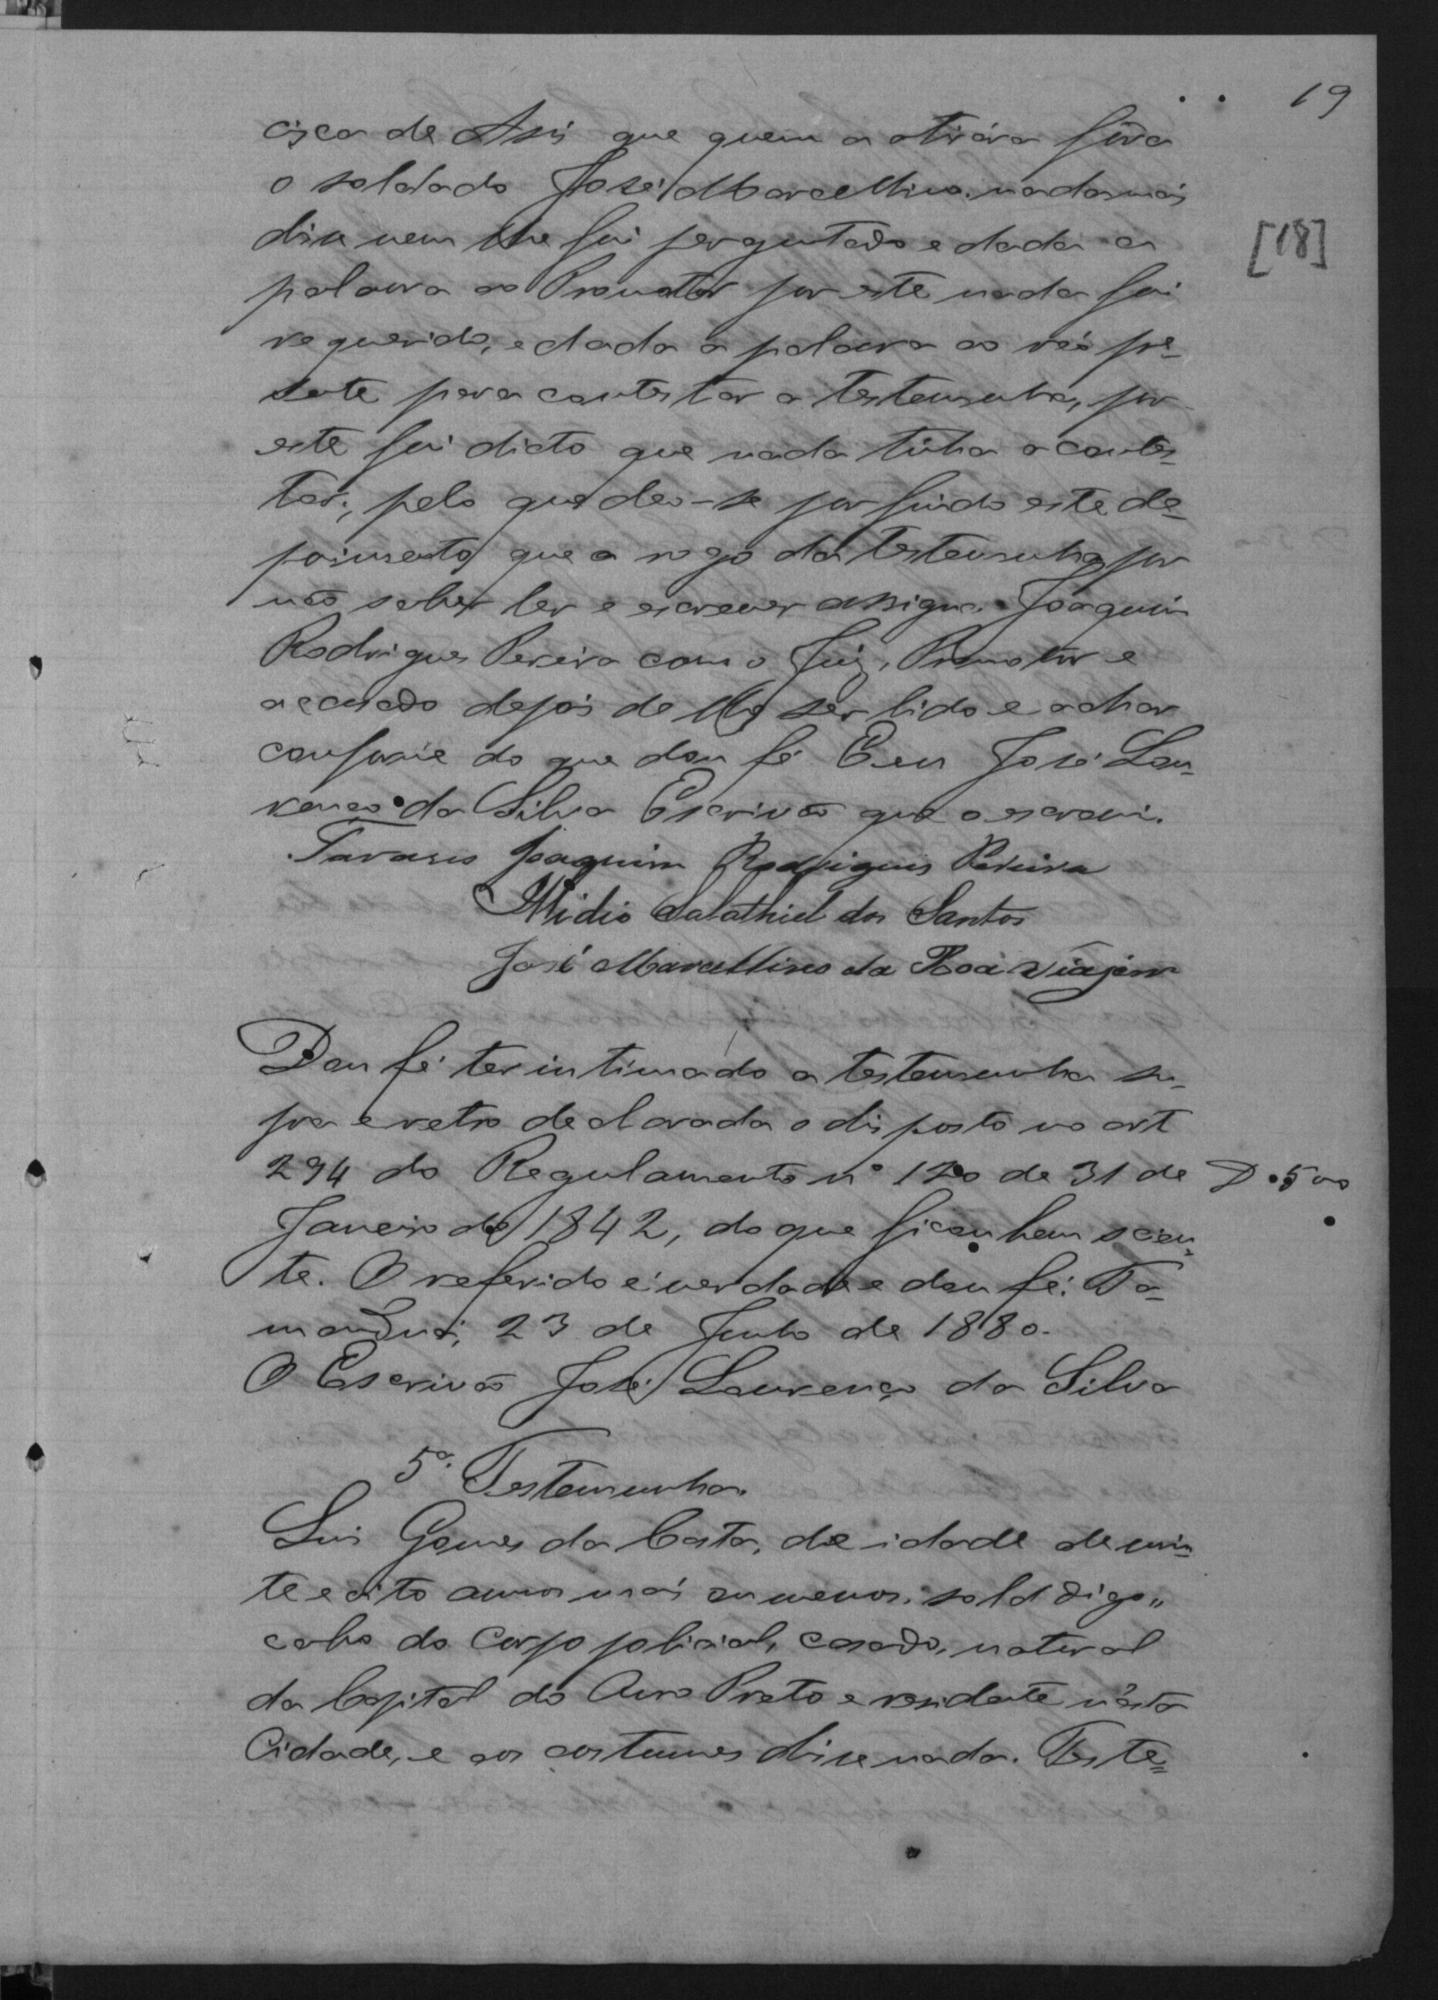 19
cisca de Assis que quem a atirára fôra
o soldado José Marcellino. nada mais
disse nem lhe foi perguntado e dada a
palavra ao Promotor por este nada foi
[18]
requerido, e dada a palavra ao réo pre=
sente para contestar a testemunha, por
este foi dicto que nada tinha a contes=
tar; pelo que deo-se por findo este de=
poimento que a rogo da testemunha por
não saber ler e escrever assigna Joaquim
Rodrigues Pereira com o Juiz, Promotor e
accusado depois de lhe ser lido e achar
conforme do que dou fé Eeu José Lou=
renço da Silva Escrivão que o escrevi.
Tavares Joaquim Rodrigues Pereira
Illidio Salathiel dos Santos
José Marcellino da Boa viájem
Dou fé ter intimado a testemunha su=
pra e retro declarada o disposto no art
294 do Regulamento nº 120 de 31 de
Janeiro de 1842, do que ficou bem scien=
te. O referido é verdade e dou fé. Ta=
manduá, 23 de Junho de 1880.
O Escrivão José Lourenço da Silva
5ª. Testemunha.
Luis Gomes da Costa, de idade de vin=
te e oito annos mais ou menos, sold digo,,
cabo do Corpo policial, casado, natural
da Capital do Ouro Preto e residente nésta
Cidade, e aos costumes disse nada. Teste=